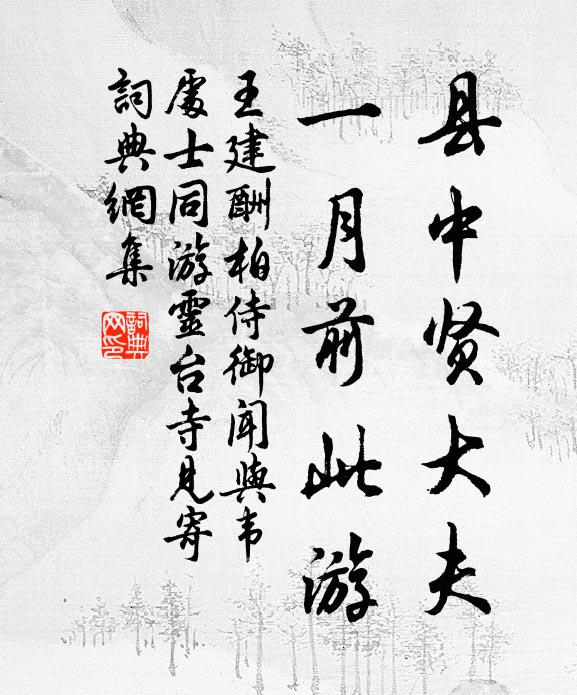 县中贤大夫
一月前此游
王建酬柏侍御闻與韦
處士同游靈台寺見寄
詞典網集
詞典網印